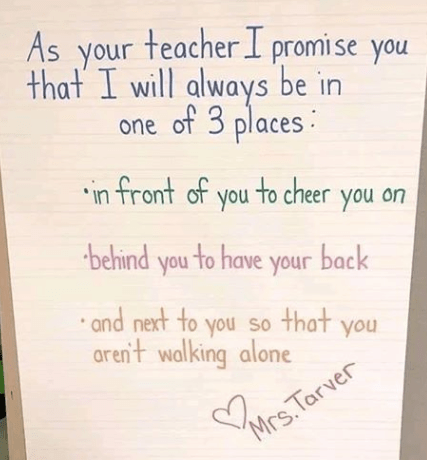 As your teacher I promise you
that I will always be in
one of 3 places:
•in front of you to cheer you on
•behind you to have your back
•and next to you so that you
aren't walking alone
♡Mrs. Tarver